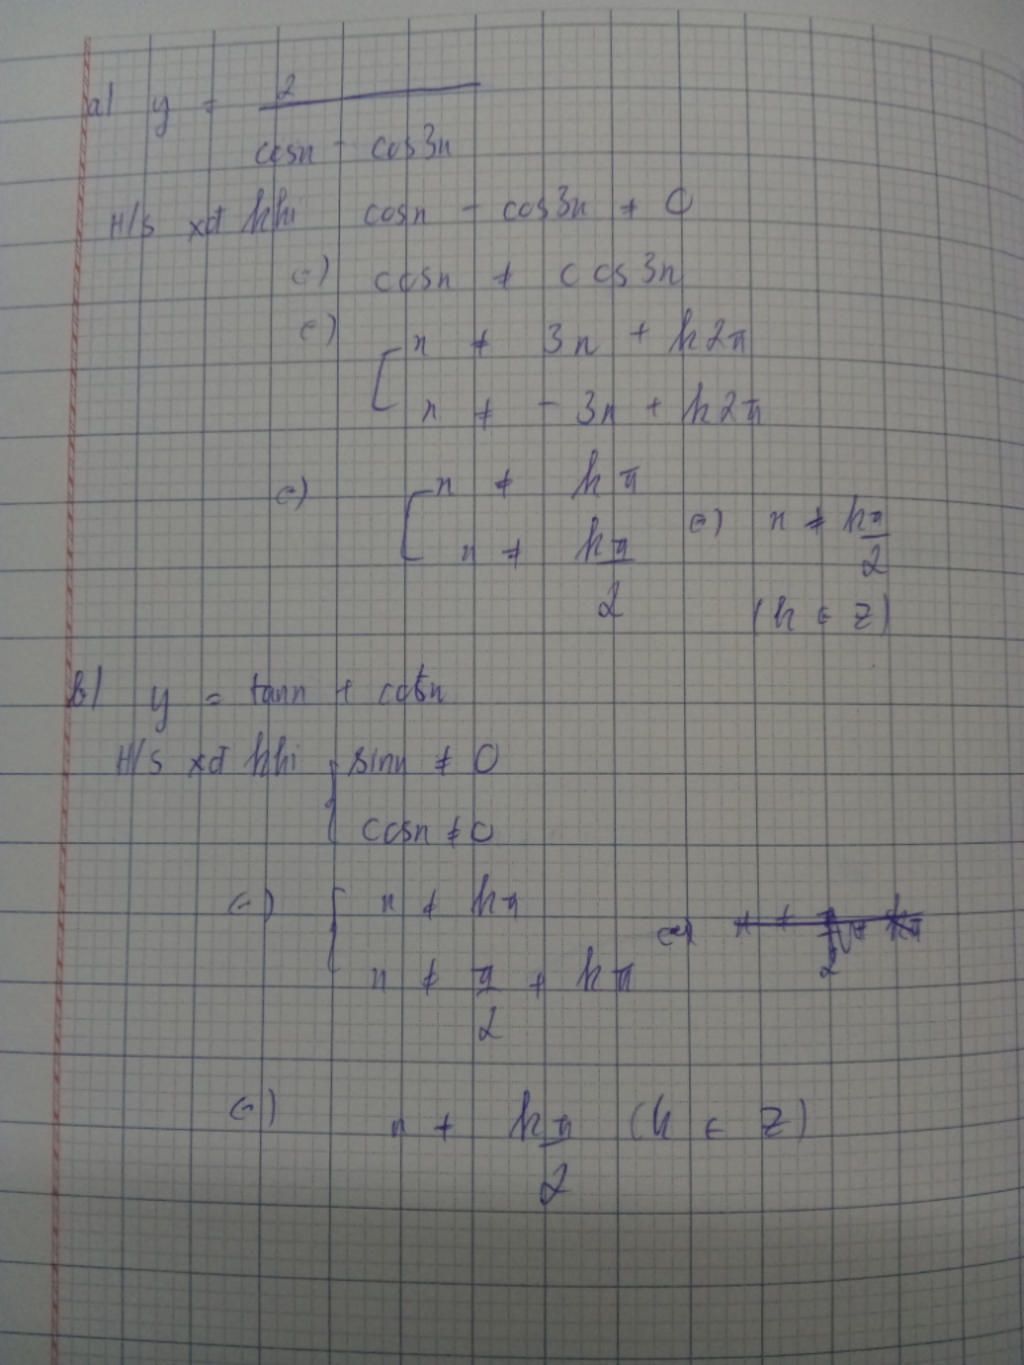 a) y = 2
cosx - cos3x
H/S xđ khi cosx - cos3x ≠ 0
⇔ cosx ≠ cos3x
⇔ [ x ≠ 3x + k2π
x ≠ - 3x + k2π
⇔ [ x ≠ kπ
x ≠ kπ/2 ⇔ x ≠ kπ/2
(k ∈ Z)
b) y = tanx + cotx
H/S xđ khi { sinx ≠ 0
cosx ≠ 0
⇔ { x ≠ kπ
x ≠ π/2 + kπ ⇔
⇔ x ≠ kπ/2 (k ∈ Z)